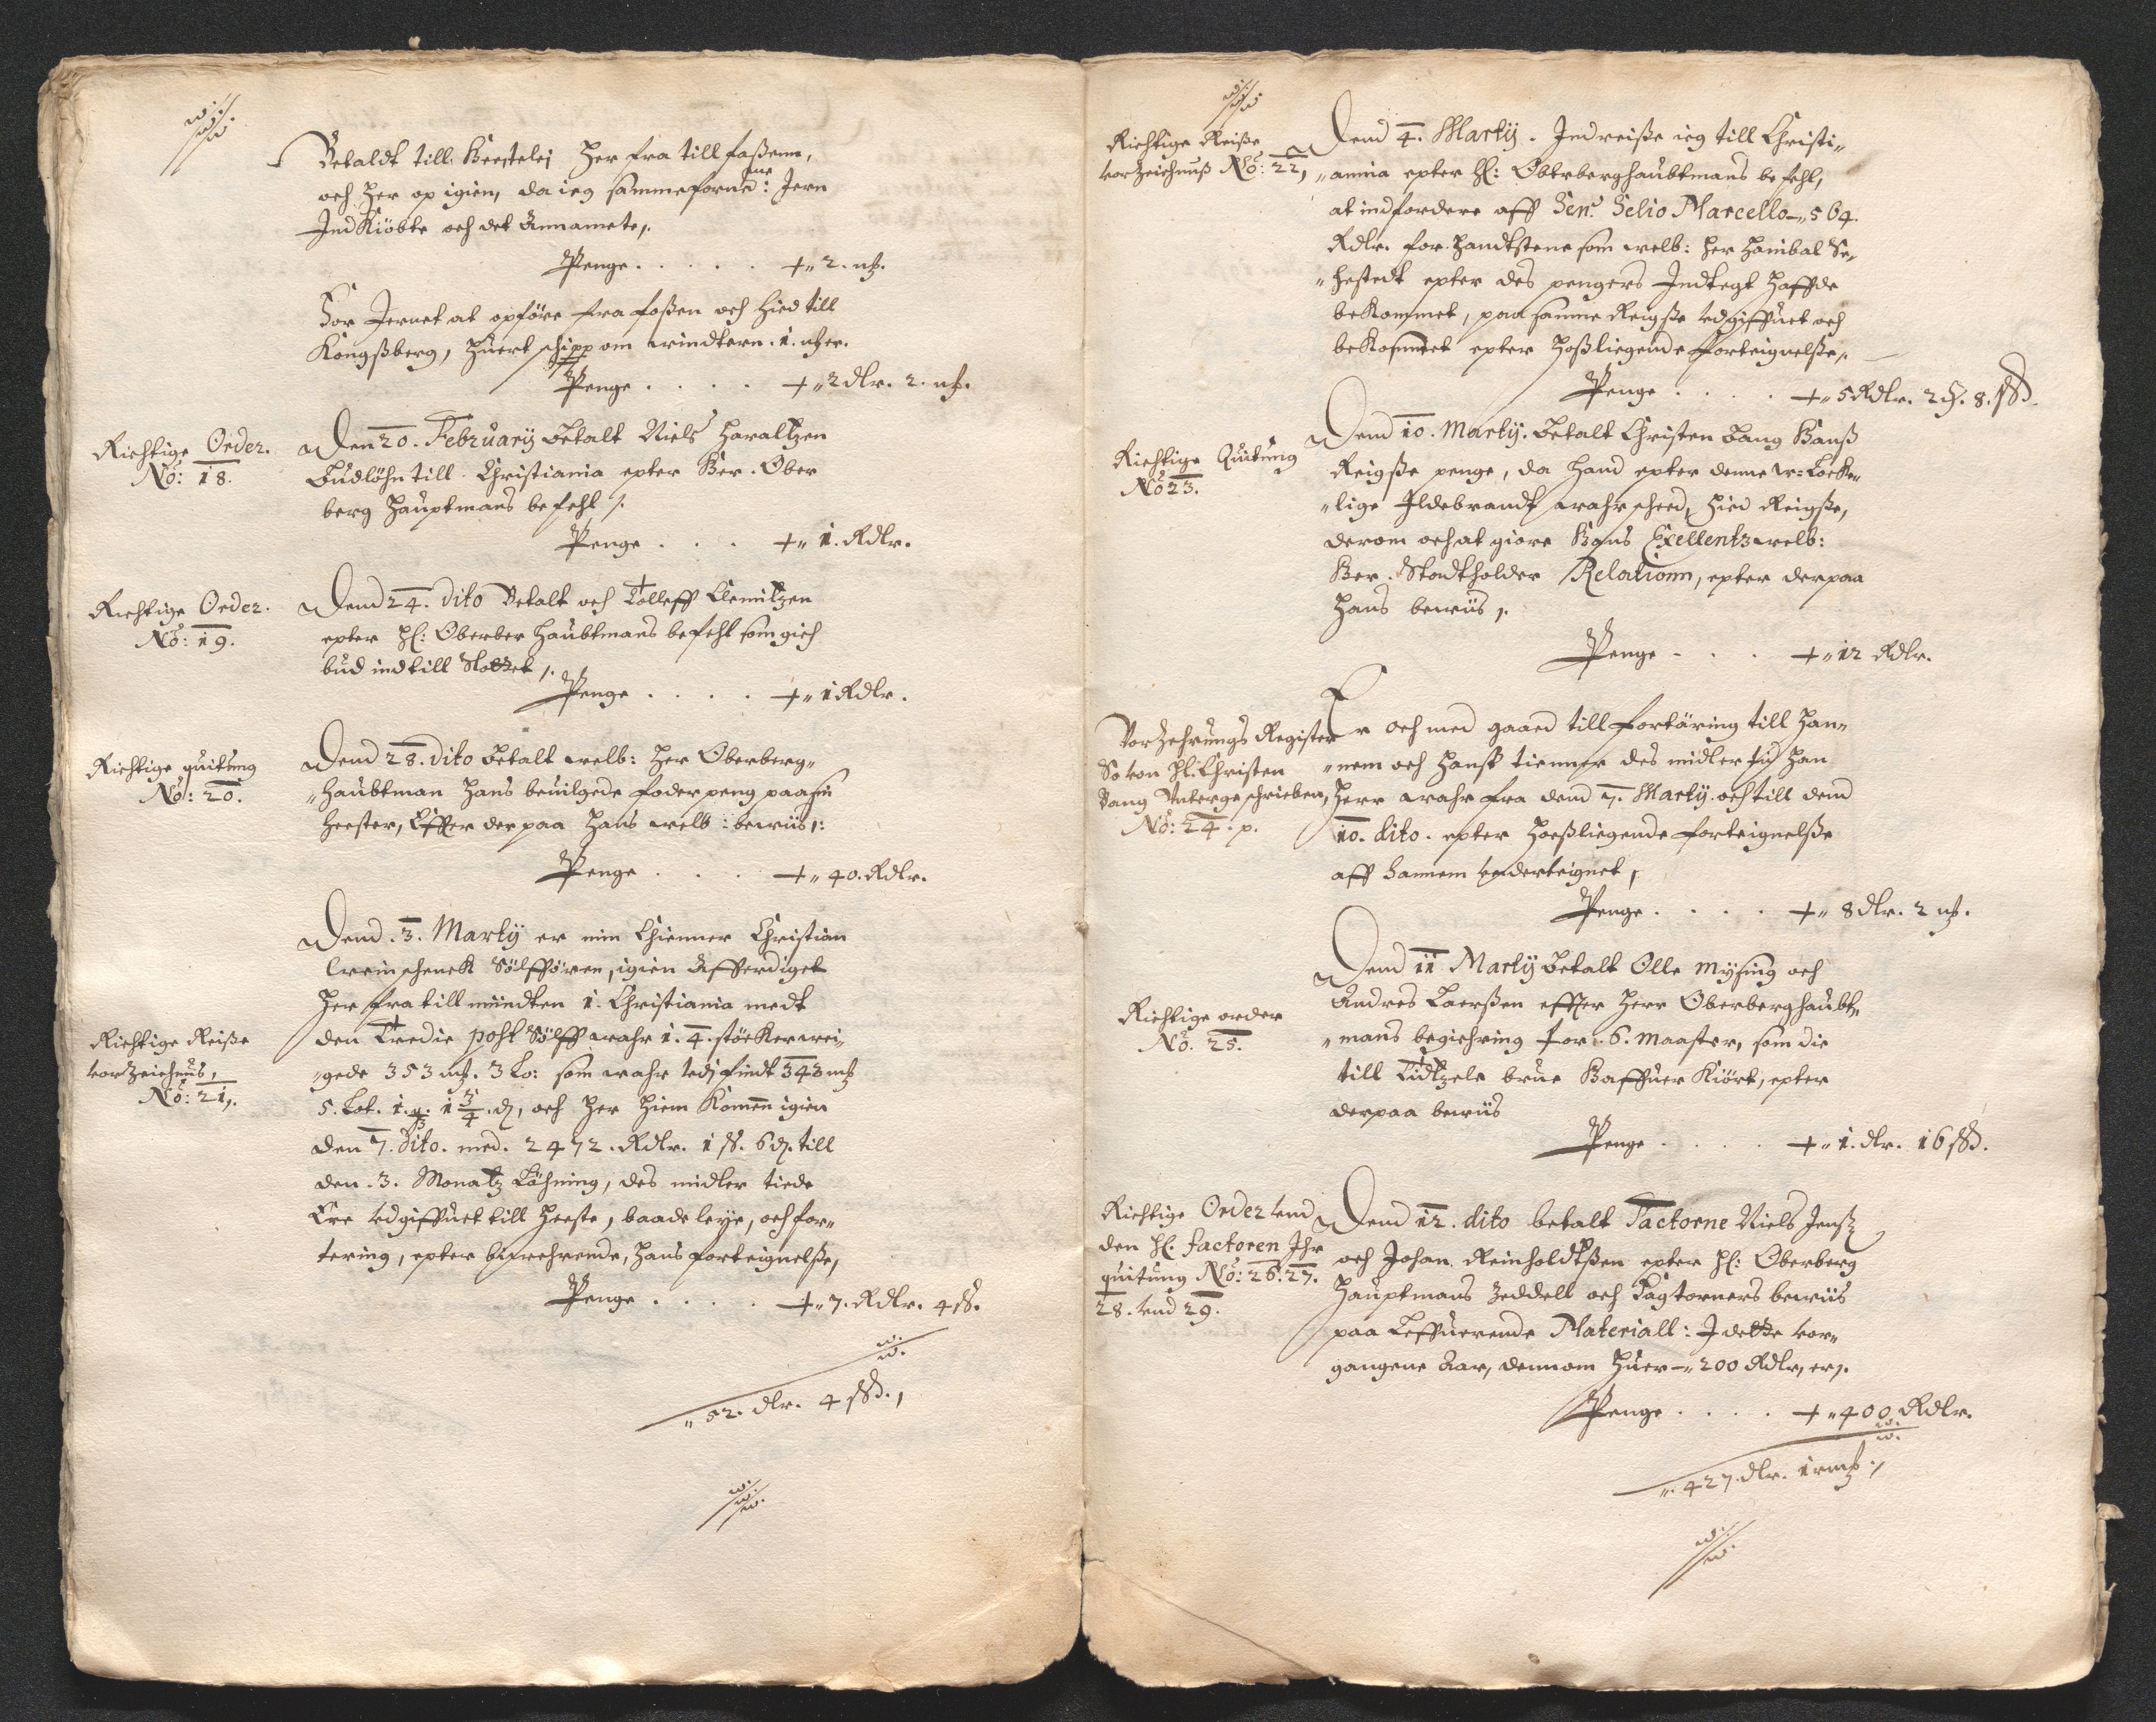 Betaldt till Heestelej her fra till foßenn,
och her op igien, da ieg sammeforne: Jern
Ind Kiöbte och det Annamete,.
Penge . . . . + „ 2. mk.
For Jernet at opföre fra foßen och hied till
Kongßberg, huert schipp om vindtern. 1. mk er.
Penge . . . . + „ 2 dlr. 2. mk.
Richtige Order.
No: 18.
Den 20. Februarij Betalt Niels Haraltzen
Budlöhn till Christiania epter Her. Ober
berg Hauptmans befehl /.
Penge . . . + „ 1. Rdlr.
Richtige Order.
No: 19.
Dend 24. dito Betalt och Tolleff Clemitzen
epter Hl: Oberber Haubtmans befehl som gich
bud ind till Slottet /.
Penge . . . . + „ 1 Rdlr.
Richtige quitung
No: 20.
Dend 28. dito Betalt welb: Her Oberberg„
„haubtman Hans beuilgede foder peng paa sin
heester, Effter der paa Hans welb: bewiis /:
Penge . . . + „ 40. Rdlr.
Richtige Reiße
vorzeichnus,
No: 21,.
Dend. 3. Martij er min Thienner Christian
schenck Sölffören, igien Afferdiget
her fra till mündten i. Christiania medt
den Tredie post Sölff wahr i. 4. stöcker wei„
„gede 353 mk. 3 Lo: som wahr udj findt 343 mk
5. Lot. 1. q. 1 3/4 . d, och her hiem Komen igien
den 7. dito. med. 2472. Rdlr. 1 ß. 6 d. till
den. 3. Monatz Löhning, des midler tiede
Ere udgiffuet till heeste, baade leye, och for„
tering, epter hans forteignelße,
Penge . . . . + „ 7. Rdlr. 4 ß.
„ 52. dlr. 4 ßd.,
Richtige Reiße
vorzeichnuß No: 22,
Dend 4. Martij. Indreiße ieg till Christi„
„annia epter Hl: Oberberghaubtmans befehl,
at indfordere aff Sen. Selio Marcello „ 564.
Rdlr. for som welb: Her Hanibal Se„
„hestedt epter des pengers Indtegt haffde
bekommet, paa samme Reigße udgiffuet och
bekosntet epter hoßliegende forteignelße,.
Penge . . . . + „ 5 Rdlr. 2 . 8. ßd.
Richtige Quitung
No 23.
Dend 10. Martij. Betalt Christen Bang Hanß
Reigße penge, da hand epter denne w=locke„
„lige Ildebrandt wahr scheed, hied Reigße,
derom och at giöre Hans Exellentz welb:
Her. Stadtholder Relationn, epter derpaa
Hans bewiis,.
Penge . . . + „ 12 Rdlr.
Vorzehrungs Register
So von Hl: Christen
Bang Untergeschrieben,
No: 24. p.
Er och med gaaed till fortäring till han„
„nem och Hanß tienner des midler tid han
Herr wahr fra dend 7. Martij. och till dend
10. dito. epter hoeßliegende forteignelße
aff hannem underteignet,
Penge . . . . + „ 8 dlr. 2 mk.
Richtige order
No. 25.
Dend 11 Martij Betalt Olle Mÿsing och
Andres Laerßen effter Herr Oberberghaubt„
„mans begiehring for. 6. Maaster, som die
till brue Haffuer Kiört, epter
derpaa bewiis
Penge . . . . + „ 1. dlr. 16 ßd.
Richtige Order und
den Hl. factoren Ihr
quitung No: 26. 27.
28. und 29.
Dend 12. dito betalt Factorne Niels Jenß
och Johan Reinholdtßen epter Hl: Oberberg
Hauptmans Zeddell och bewiis
paa Leffuerende Materiall: I dette vor„
gangene Aar, dennom huer „ 200 Rdlr, er,.
Penge . . . . + „ 400 Rdlr.
„ 427. dlr. 1 mk.,